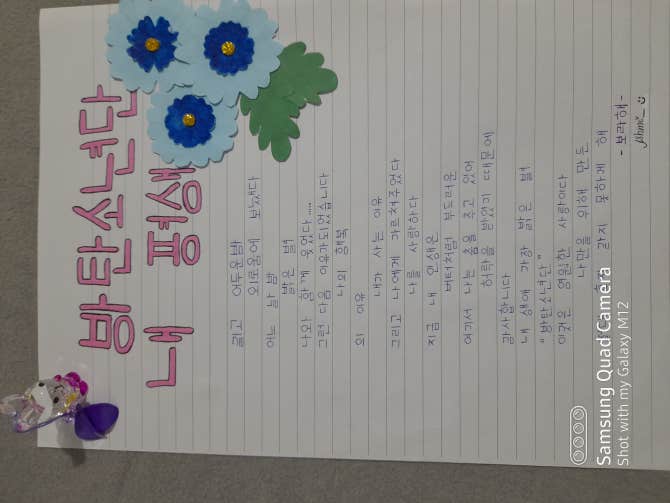 방탄소년단
내
길고 어두운밤
외로움에 보냈다
어느 날 밤
밝은 별
나와 함께 있었다....
그런 다음 이유가되었습니다
나의 행복
의 이유
내가 사는 이유
그리고 나에게 가르쳐주었다
나를 사랑하다
지금 내 인생은
버터처럼 부드러운
여기서 나는 춤을 추고 있어
허락을 받았기 때문에
감사합니다
내 생애 가장 밝은 별
"방탄소년단"
이것은 영원한 사랑이다
나만을 위해 만든
같지 못하게 해
- 보라해 -
Samsung Quad Camera
Shot with my Galaxy M12